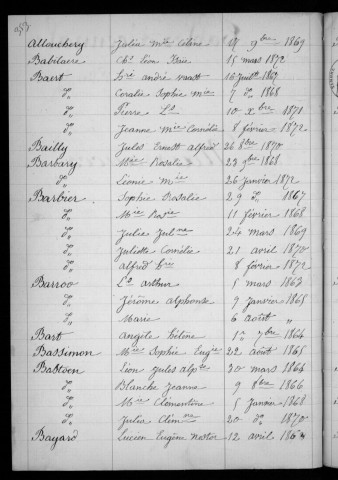 353
Allouchery Julia Mie Céline 19 9bre 1869
Babilaere Ch. Léon 15 mars 1872
Baert André Vaast 16 juillet 1867
do Coralie Sophie Mie 7 do 1868
do Pierre Ls 10 xbre 1871
do Jeanne Mie Cornélie 8 février 1872
Bailly Jules Ernest Alfred 26 8bre 1870
Barbary Mie Rosalie 23 9bre 1868
do Léonie Mie 26 janvier 1872
Barbier Sophie Rosalie 29 do 1867
do Mie Rosie 11 février 1868
do Julie Julne 24 mars 1869
do Juliette Cornélie 21 avril 1870
do Alfred 8 février 1872
Barroo Ls Arthur 5 mars 1867
do Jérôme Alphonse 9 janvier 1868
do Marie 6 août "
Bart Angèle Hélène 1er 7bre 1864
Bassimon Mie Sophie Eugie 22 août 1865
Bastoen Léon Jules Alpse 30 mars 1864
do Blanche Jeanne 9 8bre 1866
do Mie Clémentine 5 janvier 1868
do Julie Clémne 20 do 1870
Bayard Lucien Eugène Nestor 12 avril